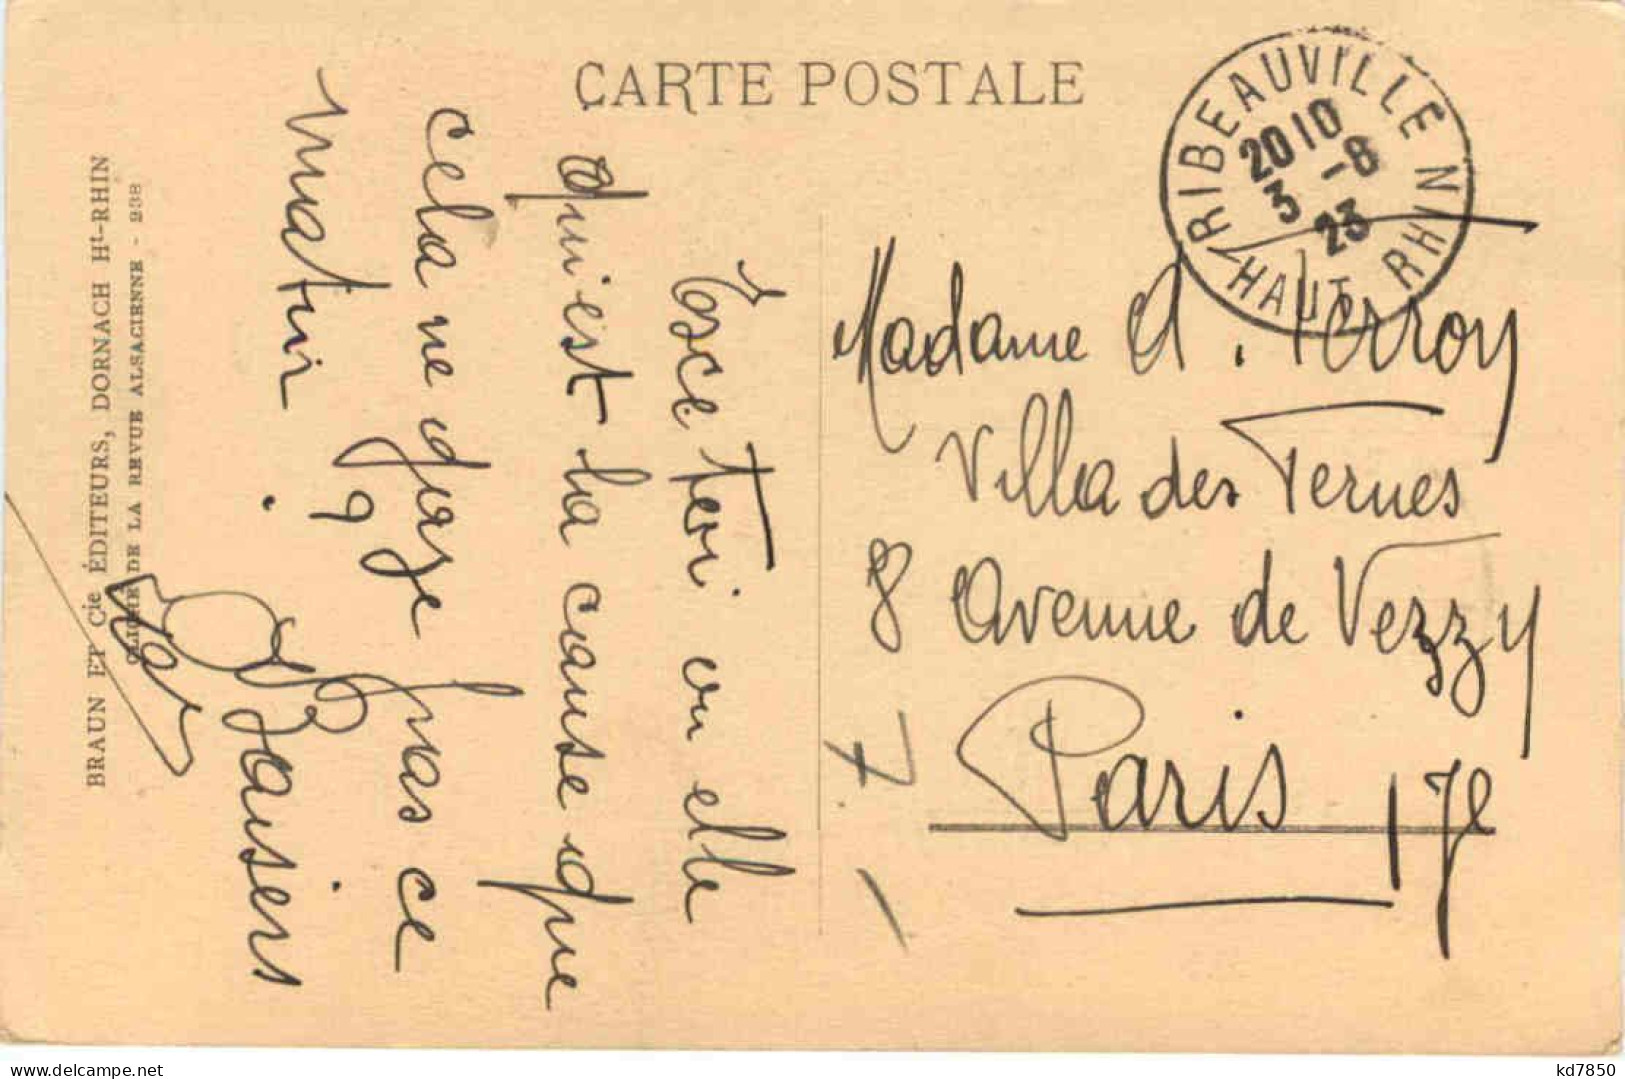 CARTE POSTALE
RIBEAUVILLE
HAUT RHIN
2010
3 -8
23
Esce toi ou elle
qui est la cause que
cela ne gaze pas ce
matin ?
Baisers
Madame A. Terroy
Villa des Ternes
8 Avenue de Verzy
Paris 17e
BRAUN ET Cie ÉDITEURS, DORNACH Ht-RHIN
CLICHÉ DE LA REVUE ALSACIENNE - 238
kd7850